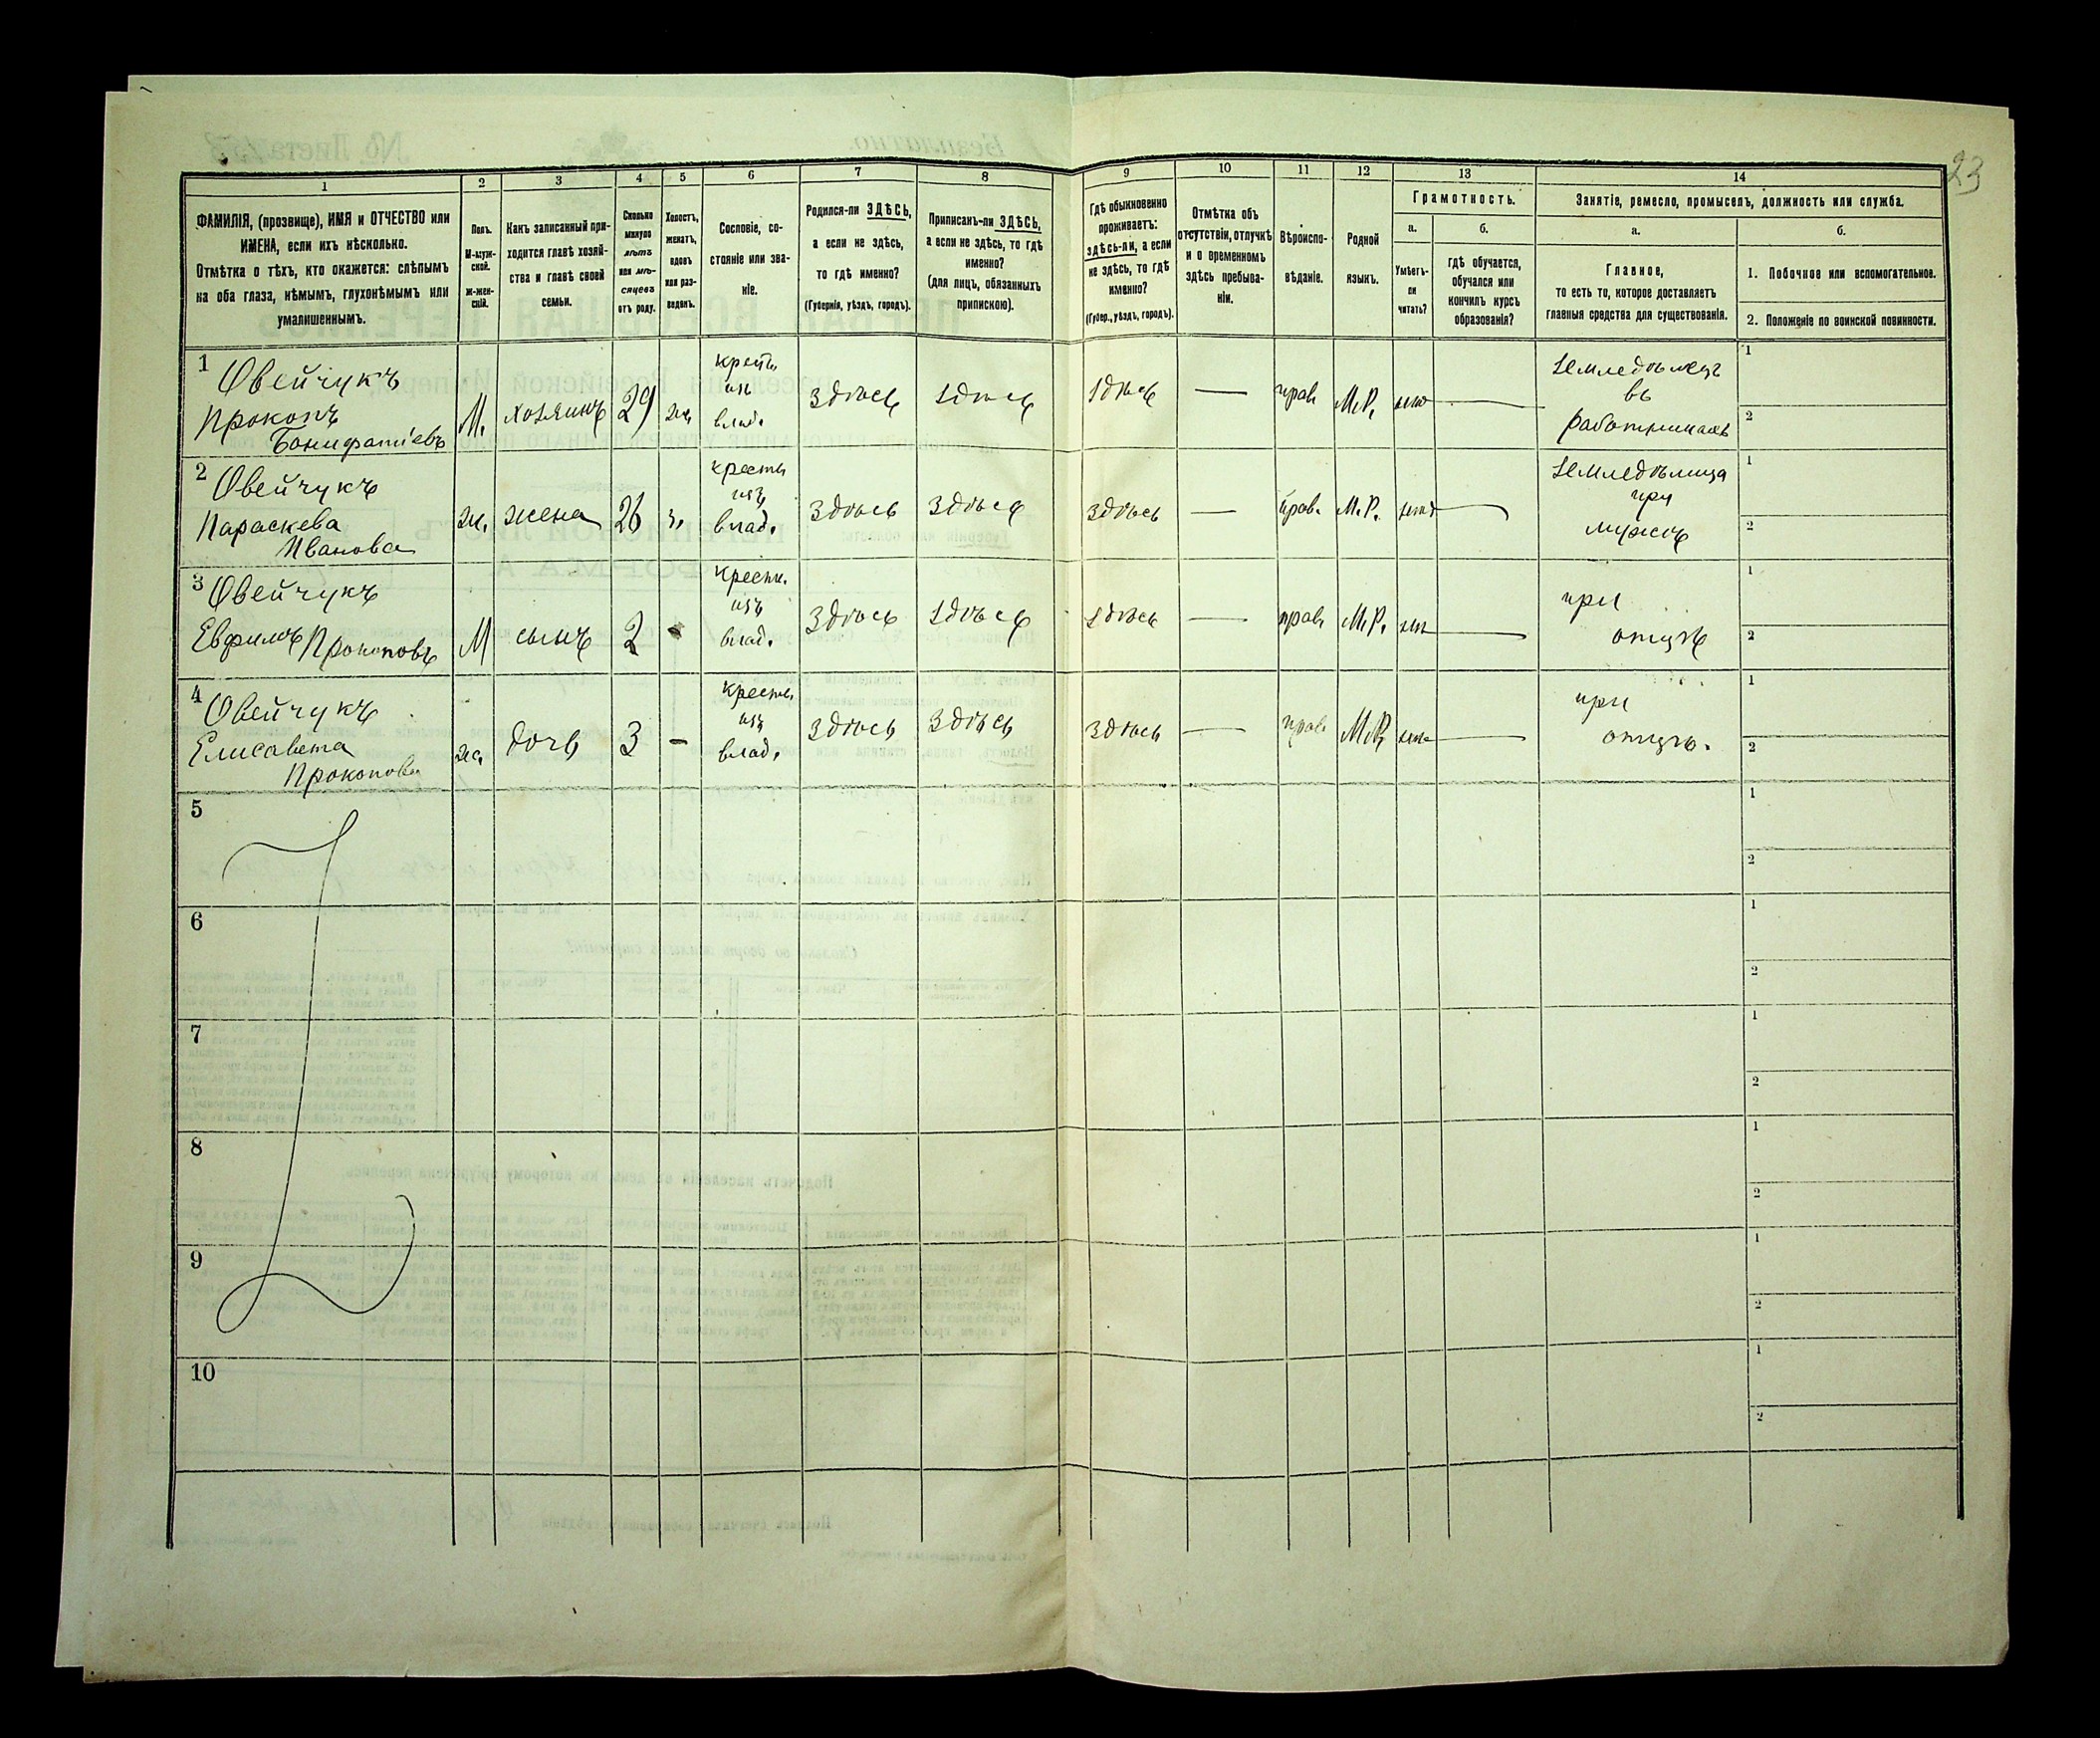 23
1 2 3 4 5 6 7 8 9 10 11 12 13 14
ФАМИЛІЯ, (прозвище), ИМЯ и ОТЧЕСТВО или
ИМЕНА, если ихъ нѣсколько.
Отмѣтка о тѣхъ, кто окажется: слѣпымъ
на оба глаза, нѣмымъ, глухонѣмымъ или
умалишеннымъ.
Полъ.
М-муж-
ской.
Ж-жен-
скій.
Какъ записанный при-
ходится главѣ хозяй-
ства и главѣ своей
семьи.
Сколько
минуло
лѣтъ
или мѣ-
сяцевъ
отъ роду.
Холостъ,
женатъ,
вдовъ
или раз-
веденъ.
Сословіе, со-
стояніе или зва-
ніе.
Родился-ли ЗДѢСЬ,
а если не здѣсь,
то гдѣ именно?
(Губернія, уѣздъ, городъ).
Приписанъ-ли ЗДѢСЬ,
а если не здѣсь, то гдѣ
именно?
(для лицъ, обязанныхъ
припискою).
Гдѣ обыкновенно
проживаетъ:
здѣсь-ли, а если
не здѣсь, то гдѣ
именно?
(Губер., уѣздъ, городъ).
Отмѣтка объ
отсутствіи, отлучкѣ
и о временномъ
здѣсь пребыва-
ніи.
Вѣроиспо-
вѣданіе.
Родной
языкъ.
Грамотность.
а.
Умѣетъ-
ли
читать?
б.
гдѣ обучается,
обучался или
кончилъ курсъ
образованія?
Занятіе, ремесло, промыселъ, должность или служба.
а.
Главное,
то есть то, которое доставляетъ
главныя средства для существованія.
б.
1. Побочное или вспомогательное.
2. Положеніе по воинской повинности.
1
Овейчукъ
Прокопъ
Бонифатіевъ
М.
хозяинъ
29
ж.
крест.
изъ
влад.
здѣсь
здѣсь
здѣсь
—
прав.
М.Р.
—
земледѣлецъ
въ
работникахъ
1
2
2
Овейчукъ
Параскева
Иванова
ж.
жена
26
з.
крестъ
изъ
влад.
здѣсь
здѣсь
здѣсь
—
прав.
М.Р.
—
земледѣлица
при
мужѣ
1
2
3
Овейчукъ
Прокоповъ
М
сынъ
2
-
крестн.
изъ
влад.
здѣсь
здѣсь
здѣсь
—
прав.
М.Р.
—
при
отцѣ
1
2
4
Овейчукъ
Елисавета
Прокопова
ж.
дочь
3
-
крестн.
изъ
влад.
здѣсь
здѣсь
здѣсь
—
прав.
М.Р.
—
при
отцѣ.
1
2
5
1
2
6
1
2
7
1
2
8
1
2
9
1
2
10
1
2